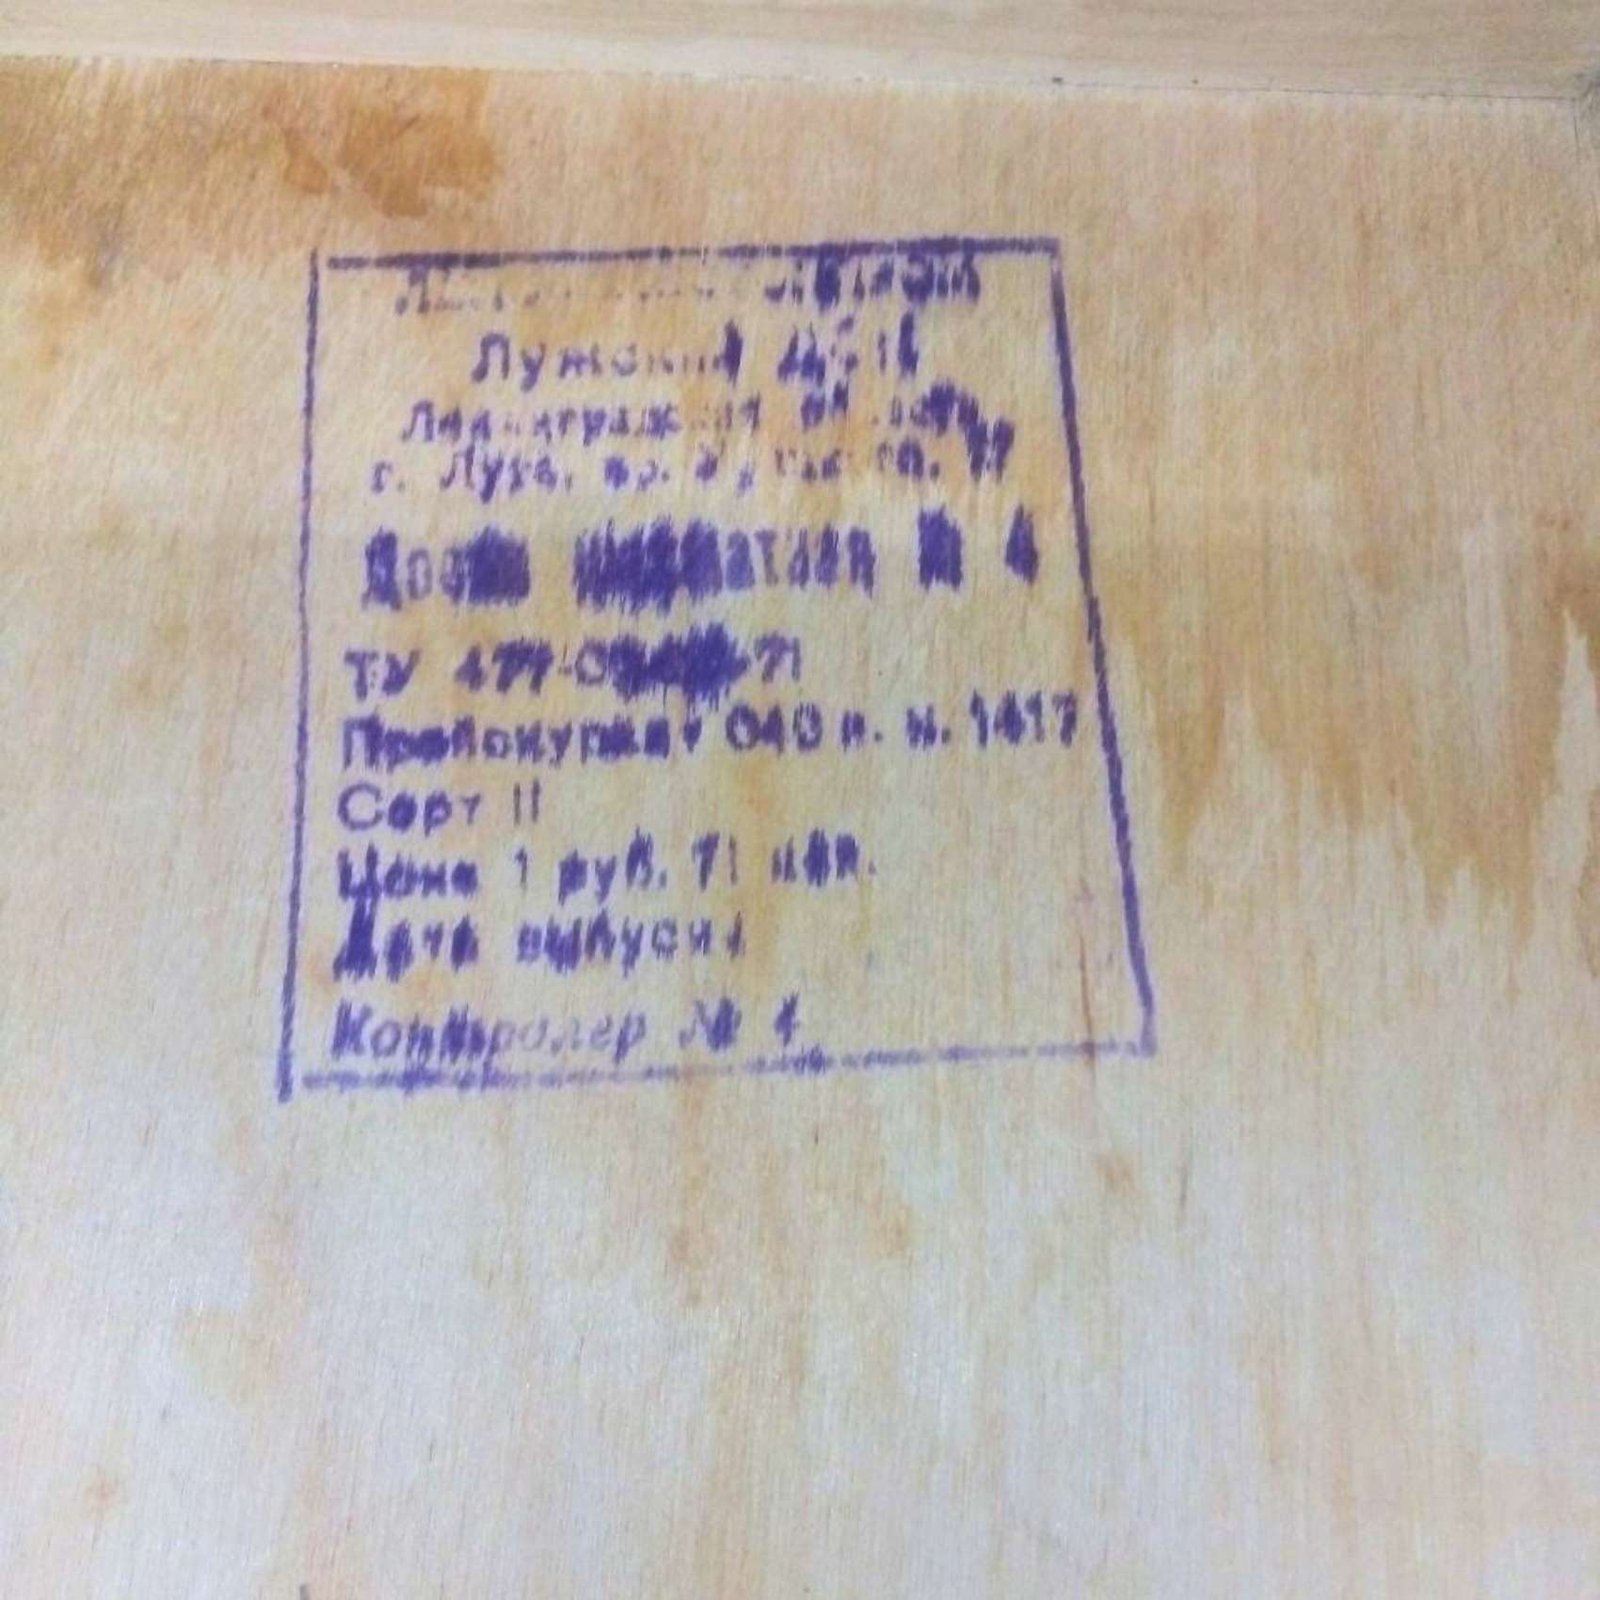 Лужский
Ленинградская область
г. Луга, пр. 77
Доска шахматная № 4
ТУ 477- -71
Прейскурант 040 п. н. 1417
Сорт II
Цена 1 руб. 71 коп.
Дата выпуска
Контролер № 4